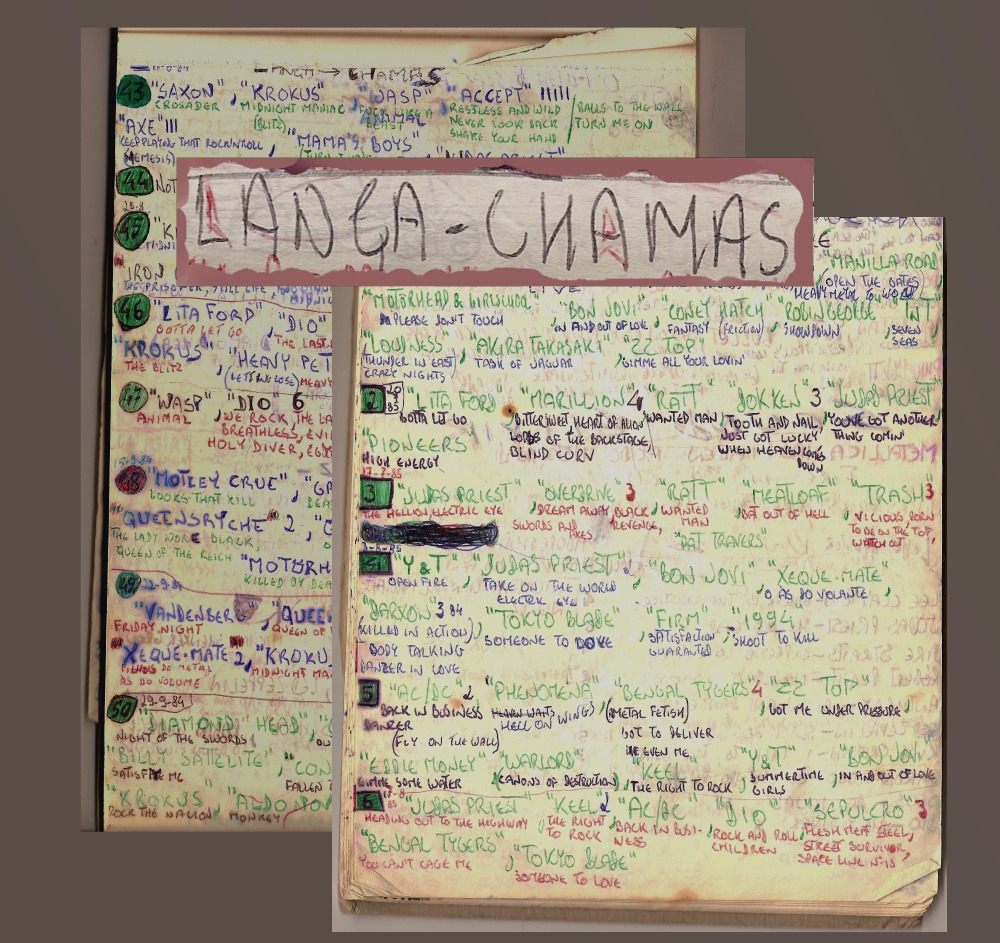 LANÇA → CHAMAS
43 "SAXON", "KROKUS" "WASP" "ACCEPT" !!!!!
CROSADER MIDNIGHT MANIAC FUCK LIKE A RESTLESS AND WILD / BALLS TO THE WALL
(BLITZ) ANIMAL BEAST NEVER LOOK BACK / TURN ME ON
SHAKE YOUR HAND
"AXE" !!!
KEEP PLAYING THAT ROCK'N'ROLL, "MAMA'S BOYS"
(NEMESIS)
44 NOT
45 "K
IRON
THE PRISONER, STILL LIFE
46 "LITA FORD" "DIO"
GOTTA LET GO THE LAST
"KROKUS" "HEAVY PET
THE BLITZ (LETTING LOSE) HEAVY
47 "WASP" "DIO" 6
ANIMAL WE ROCK, THE LA
BREATHLESS, EVI
HOLY DIVER,
15-9-84
48 "MOTLEY CRUE"
LOOKS THAT KILL
"QUEENSRYCHE" 2
THE LADY WORE BLACK,
QUEEN OF THE REICH "MOTORH
KILLED BY DEA
49 22-9-84
"VANDENBERG", "QUEE
FRIDAY NIGHT QUEEN OF
"XEQUE-MATE" 2, "KROKU
FILHOS DO METAL MIDNIGHT MA
AS DO VOLANTE
50 29-9-84
"DIAMOND HEAD"
NIGHT OF THE SWORDS
"BILLY SATELLITE" "CON
SATISFY ME FALLEN
"KROKUS" "ALDO NOV
ROCK THE NATION MONKEY
LANÇA-CHAMAS
"MANILLA ROAD"
OPEN THE GATES
HEAVY METAL TO WORLD
LIVE
"MOTORHEAD & GIRLSCHOOL" "BON JOVI" "CONEY HATCH" "ROBIN GEORGE" "TNT"
PLEASE DON'T TOUCH IN AND OUT OF LOVE FANTASY (FRICTION) SHOWDOWN SEVEN
SEAS
"LOUDNESS" "AKIRA TAKASAKI" "ZZ TOP"
(THUNDER IN EAST) TASK OF JAGUAR GIMME ALL YOUR LOVIN'
CRAZY NIGHTS
2 "LITA FORD" "MARILLION" 4 "RATT" "DOKKEN" 3 "JUDAS PRIEST"
GOTTA LET GO BITTERSWEET, HEART OF WANTED MAN TOOTH AND NAIL YOU'VE GOT ANOTHER
LORDS OF THE BACKSTAGE JUST GOT LUCKY THING COMIN'
BLIND CURV WHEN HEAVEN COMES DOWN
"PIONEERS"
HIGH ENERGY
17-7-85
3 "JUDAS PRIEST" "OVERDRIVE" 3 "RATT" "MEATLOAF" "TRASH" 3
THE HELLION, ELECTRIC EYE DREAM AWAY, BLACK WANTED BAT OUT OF HELL VICIOUS, BORN
SWORDS AND AXES REVENGE, MAN TO BE ON THE TOP,
"PAT TRAVERS" WATCH OUT
4 "Y&T" "JUDAS PRIEST" "BON JOVI" "XEQUE-MATE"
OPEN FIRE TAKE ON THE WORLD O ÁS DO VOLANTE
ELECTRIC EYE
"DARXON" 3 84 "TOKYO BLADE" "FIRM" 1994
(KILLED IN ACTION) SOMEONE TO LOVE SATISFACTION SHOOT TO KILL
BODY TALKING GUARANTED
DANZER IN LOVE
5 "AC/DC" 2 "PHENOMENA" "BENGAL TYGERS" 4 "ZZ TOP"
BACK IN BUSINESS HELL ON WINGS (METAL FETISH) GOT ME UNDER PRESSURE
DANZER GOT TO DELIVER
(FLY ON THE WALL) EVEN ME
"EDDIE MONEY" "WARLORD" "KEEL" "Y&T" "BON JOVI"
GIMME SOME WATER (CANONS OF DESTRUCTION) THE RIGHT TO ROCK SUMMERTIME IN AND OUT OF LOVE
GIRLS
6 "JUDAS PRIEST" "KEEL" 2 "AC/DC" "DIO" "SEPULCRO" 3
HEADING OUT TO THE HIGHWAY THE RIGHT BACK IN BUSI- ROCK AND ROLL FLESH MEAT STEEL,
TO ROCK NESS CHILDREN STREET SURVIVOR
SPACE LINE Nº13
"BENGAL TYGERS" "TOKYO BLADE"
YOU CAN'T CAGE ME SOMEONE TO LOVE